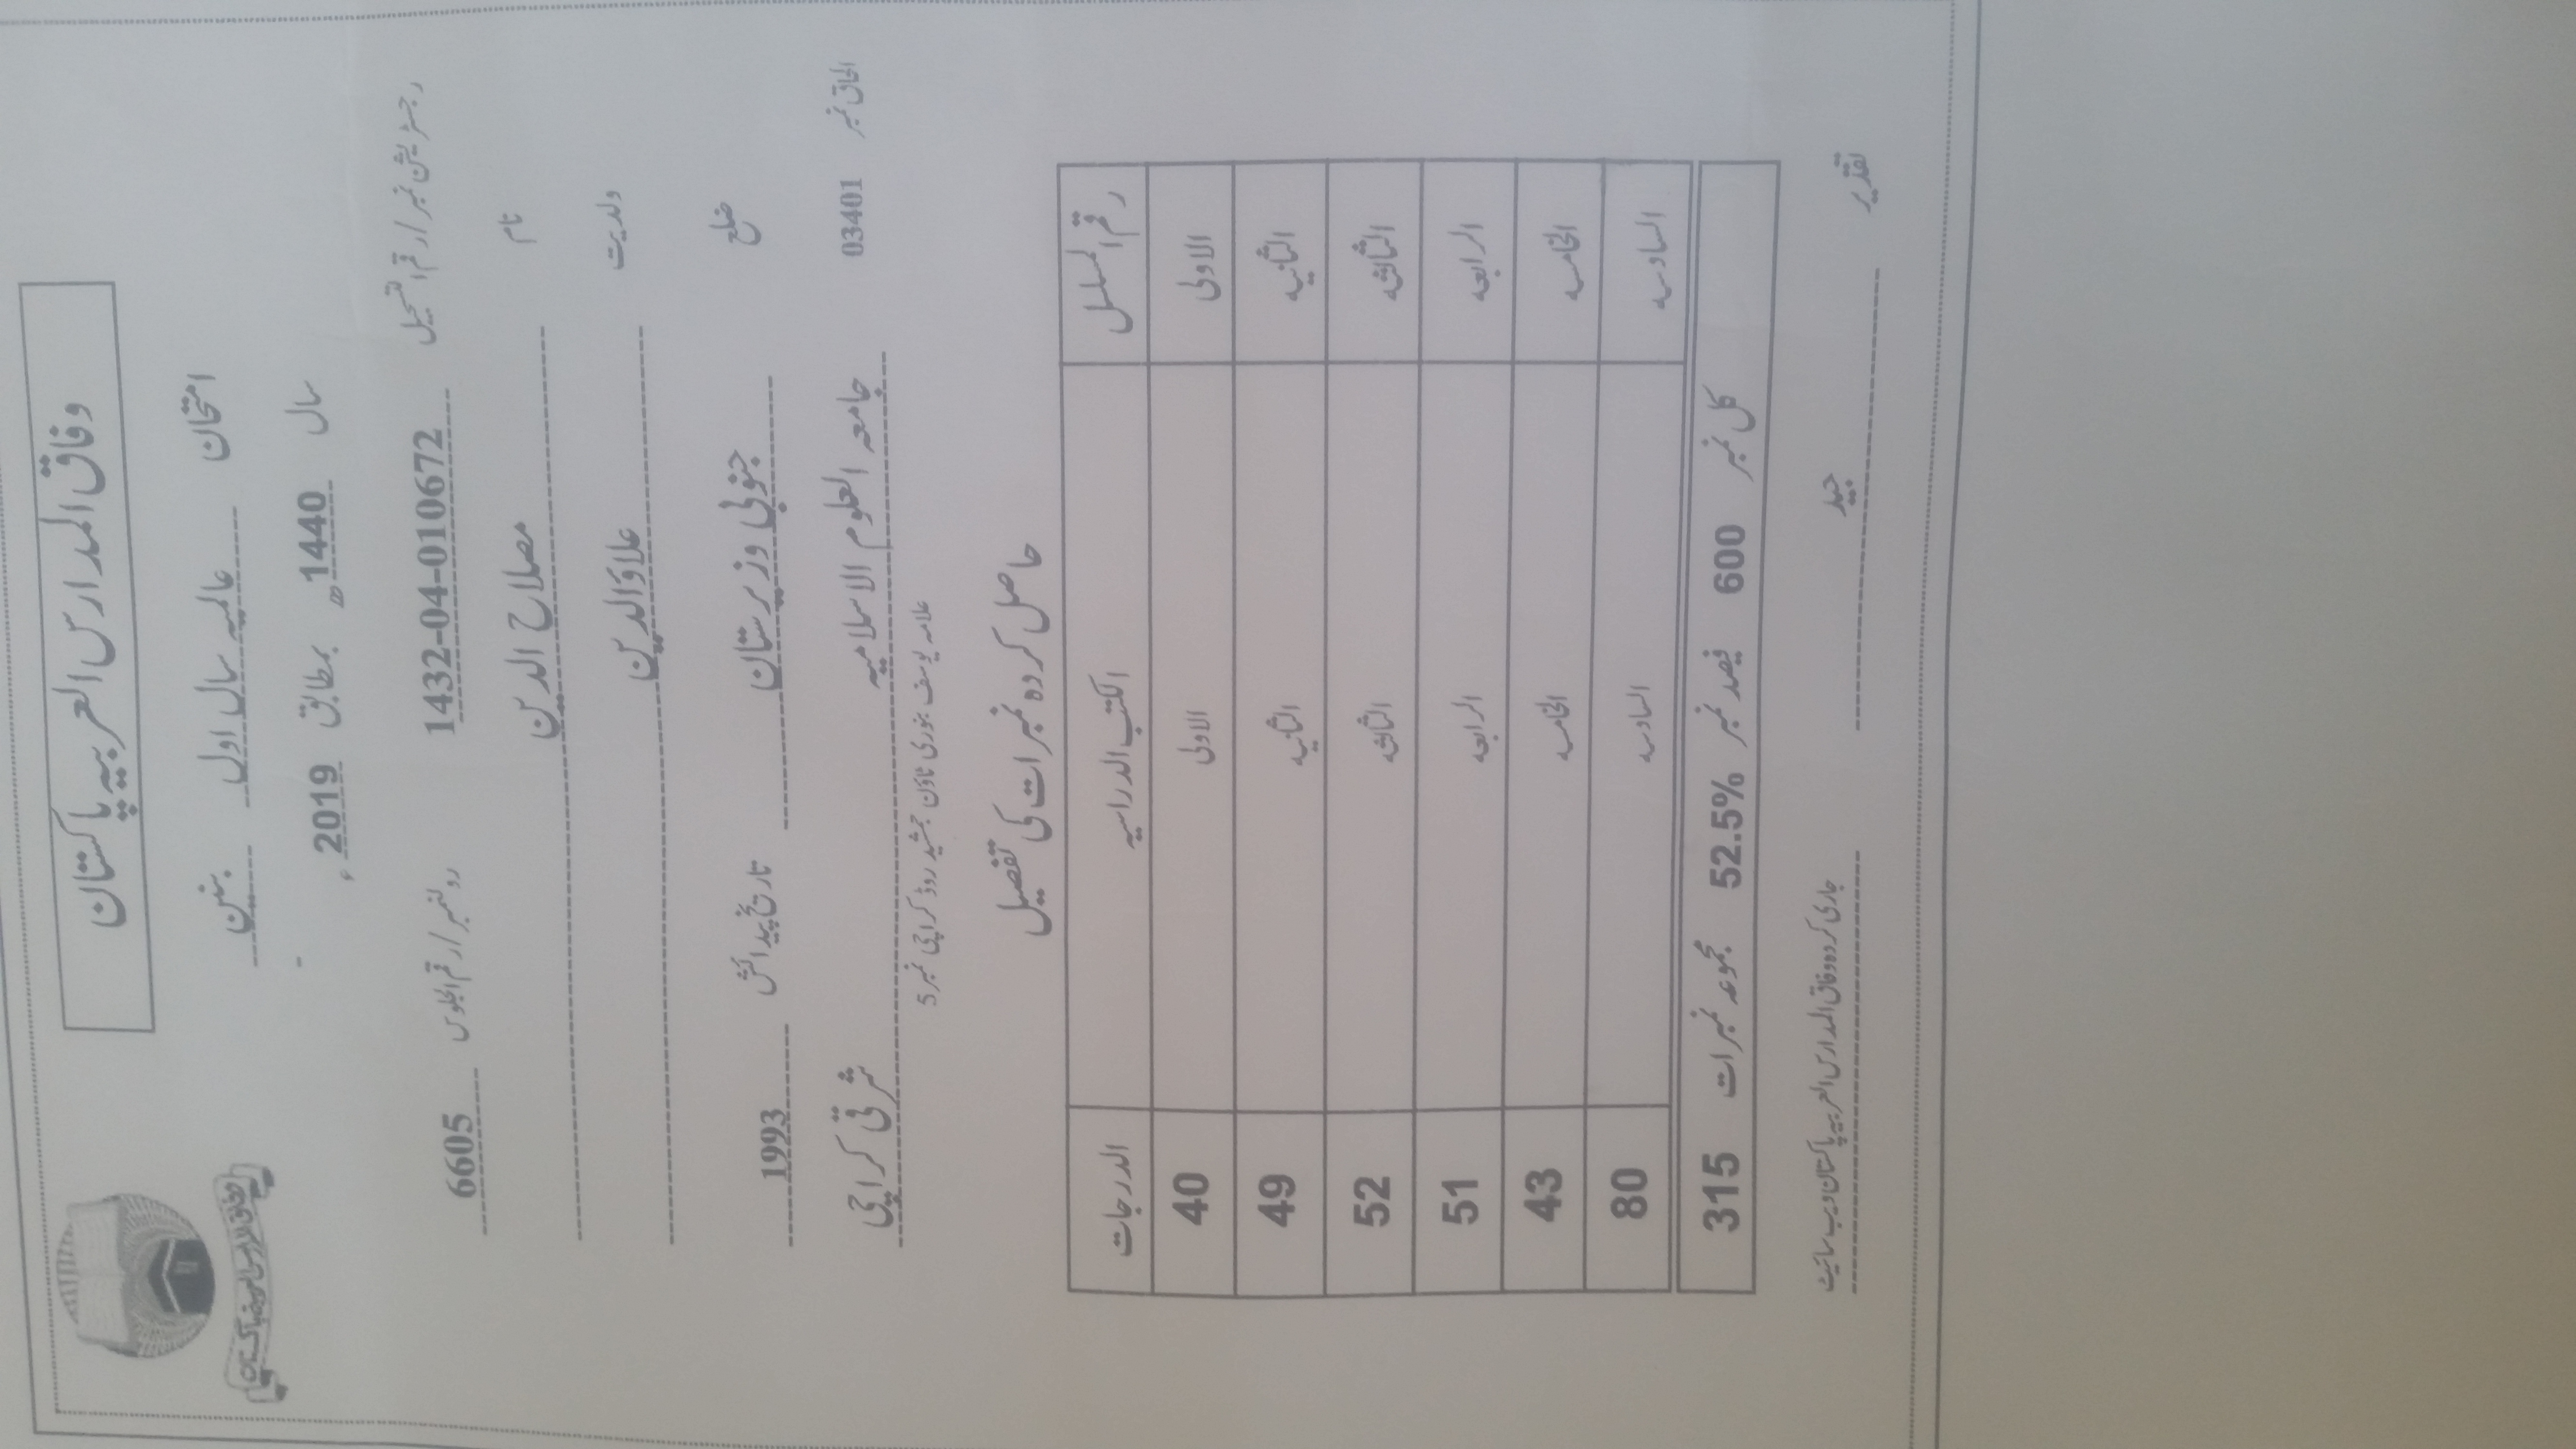 وفاق المدارس العربیہ پاکستان
وفاق المدارس العربیہ پاکستان
امتحان عالمیہ سال اولی بنین
سال 1440ھ بمطابق 2019ء
رجسٹریشن نمبر / رقم التسجیل 1432-04-010672 رولنمبر / رقم الجلوس 6605
نام مصلاح الدین
ولدیت علاؤالدین
ضلع جنوبی وزیرستان تاریخ پیدائش 1993
الحاق نمبر 03401 جامعہ العلوم الاسلامیہ شرقی کراچی
علامہ یوسف بنوری ٹاؤن جمشید روڈ کراچی نمبر 5
حاصل کردہ نمبرات کی تفصیل
رقم المسلسل الکتب الدراسیہ الدرجات
الاولی الاولی 40
الثانیہ الثانیہ 49
الثالثہ الثالثہ 52
الرابعہ الرابعہ 51
الخامسہ الخامسہ 43
السادسہ السادسہ 80
کل نمبر 600 فیصد نمبر 52.5% مجموعہ نمبرات 315
تقدیر جید جاری کردہ وفاق المدارس العربیہ پاکستان ویب سائیٹ